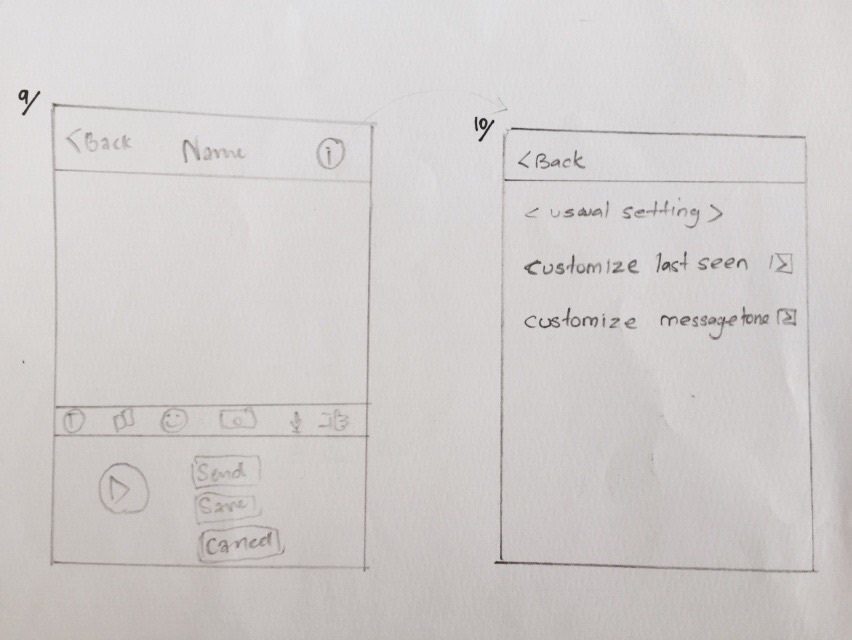 9/
<Back Name i
T
Send
Save
Cancel
10/
<Back
< usual setting >
customize last seen
customize messagetone